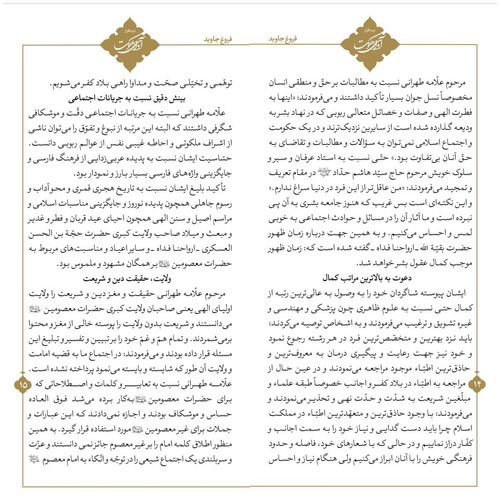 فروغ جاوید
مرحوم علّامه طهرانی نسبت به مطالبات بر حق و منطقی انسان
مخصوصاً نسل جوان بسیار تأکید داشتند و می‌فرمودند: «اینها به
فطرت الهی و صفات و خصائل متعالی ربوبی که در نهاد بشر به
ودیعه گذارده شده است از سایرین نزدیک‌ترند و در یک حکومت
و اجتماع اسلامی نمی‌توان به سؤالات و مطالبات و تقاضای به
حق آنان بی‌تفاوت بود.» حتّی نسبت به استاد عرفان و سیر و
سلوک خویش مرحوم حاج سیّد هاشم حدّاد در مقام تعریف
و تمجید می‌فرمودند: «من عاقل‌تر از این فرد در دنیا سراغ ندارم.»
و این نکته‌ای است بس غریب که هنوز جامعه بشری به آن پی
نبرده است و ما آثار آن را در مسائل و حوادث اجتماعی به خوبی
لمس و احساس می‌کنیم. و به همین جهت درباره زمان ظهور
حضرت بقیّة الله ـ ارواحنا فداه ـ گفته شده است که: زمان ظهور
موجب کمال عقول بشر خواهد شد.
دعوت به بالاترین مراتب کمال
ایشان پیوسته شاگردان خود را به وصول به عالی‌ترین رتبه از
کمال حتی نسبت به علوم ظاهری چون پزشکی و مهندسی و
غیره تشویق و ترغیب می‌فرمودند و به اشخاص توصیه می‌کردند:
باید نزد بهترین و متخصّص‌ترین فرد در هر رشته رجوع نمود
و خود نیز جهت رعایت و پیگیری درمان به معروف‌ترین و
حاذق‌ترین اطبّاء موجود مراجعه می‌نمودند و در عین حال از
مراجعه به اطبّاء در بلاد کفر و اجانب خصوصاً طبقه علماء و
مبلّغین شریعت به شدّت و حدّت نهی و تحذیر می‌نمودند و
می‌فرمودند: با وجود حاذق‌ترین و متعهّدترین اطبّاء در مملکت
اسلام چرا باید دست گدایی و نیاز خود را به سمت اجانب و
کفّار دراز نماییم و در حالی که با شعارهای خود، فاصله و حدود
فرهنگی خویش را با آنان ابراز می‌کنیم ولی هنگام نیاز و احساس
۱۴
فروغ جاوید
توقمی و تخیّلی صحّت و مداوا راهی بلاد کفر می‌شویم.
بینش دقیق نسبت به جریانات اجتماعی
علّامه طهرانی نسبت به جریانات اجتماعی دقّت و موشکافی
شگرفی داشتند که البته این مرتبه از نبوغ و تفوّق را می‌توان ناشی
از اشراف ملکوتی و احاطه غیبی نفس از عوالم ربوبی دانست.
حسّاسیت ایشان نسبت به پدیده عربی‌زدایی از فرهنگ فارسی و
جایگزینی واژه‌های فارسی بسیار بارز و نمودار بود.
تأکید بلیغ ایشان نسبت به تاریخ هجری قمری و محو آداب و
رسوم جاهلی همچون پدیده نوروز و جایگزینی مناسبات اسلامی و
مراسم اصیل و سنن الهی همچون احیای عید قربان و فطر و غدیر
و مبعث و میلاد صاحب ولایت کبری حضرت حجّة بن الحسن
العسکری ـ ارواحنا فداه ـ و سایر اعیاد و مناسبت‌های مربوط به
حضرات معصومین بر همگان مشهود و ملموس بود.
ولایت، حقیقت دین و شریعت
مرحوم علّامه طهرانی حقیقت و مغز دین و شریعت را ولایت
اولیای الهی یعنی صاحبان ولایت کبری حضرات معصومین
می‌دانستند و شریعت بدون ولایت را پوسته خالی از مغز و محتوا
برمی‌شمردند. و تمام همّ و غمّ خود را بر تبیین و تفسیر و تبلیغ این
مسئله قرار داده بودند و می‌فرمودند: در اجتماع ما به قضیه امامت
و ولایت آن طور که شایسته و بایسته می‌نمود پرداخته نشده است.
علّامه طهرانی نسبت به تعابیر و کلمات و اصطلاحاتی که
برای حضرات معصومین به‌کار برده می‌شد فوق العاده
حساس و موشکاف بودند و اجازه نمی‌دادند که این عبارات و
جملات برای غیر معصومین مورد استفاده قرار گیرد. به همین
منظور اطلاق کلمه امام را بر غیر معصوم جائز نمی‌دانستند و عزّت
و سربلندی یک اجتماع شیعی را در توجّه و اتّکاء به امام معصوم
۱۵